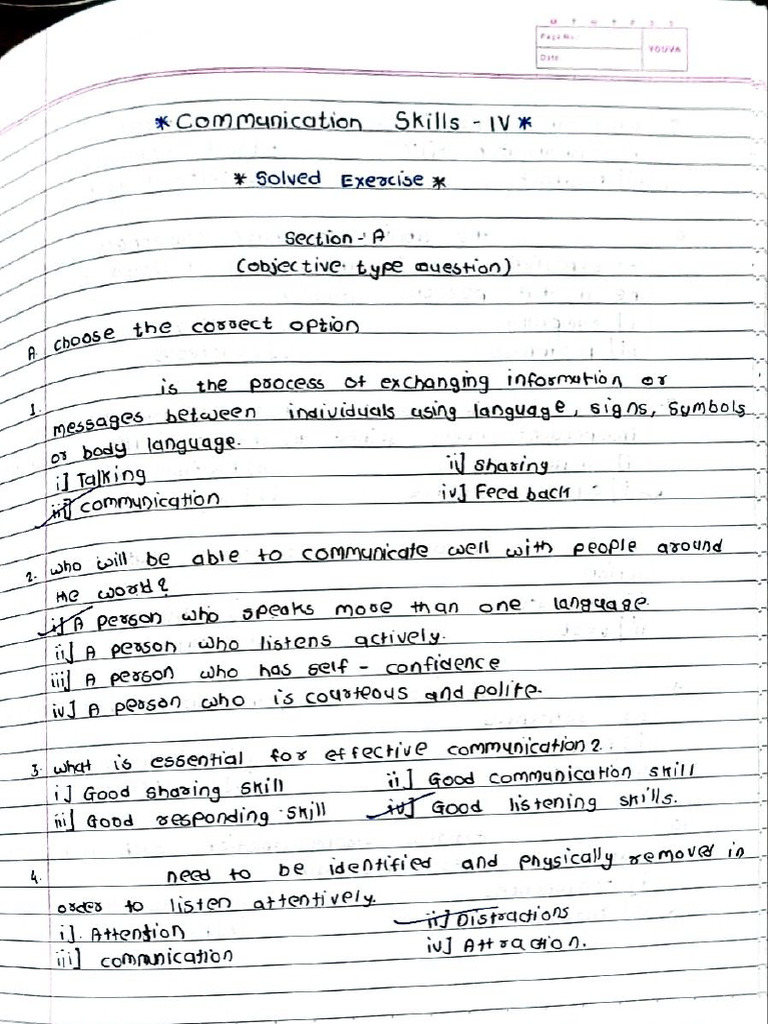 M T W T F S S
Page No.:
YOUVA
Date:
* Communication Skills - IV *
* Solved Exercise *
Section - A
(objective type question)
A. choose the correct option
1. is the process of exchanging information or
messages between individuals using language, signs, symbols
or body language.
i] Talking ii] sharing
iii] communication iv] Feed back
2. who will be able to communicate well with people around
the world?
i] A person who speaks more than one language.
ii] A person who listens actively.
iii] A person who has self - confidence
iv] A person who is courteous and polite.
3. what is essential for effective communication?
i] Good sharing skill ii] Good communication skill
iii] Good responding skill iv] Good listening skills.
4. need to be identified and physically removed in
order to listen attentively.
i]. Attention ii] Distractions
iii] communication iv] Attraction.